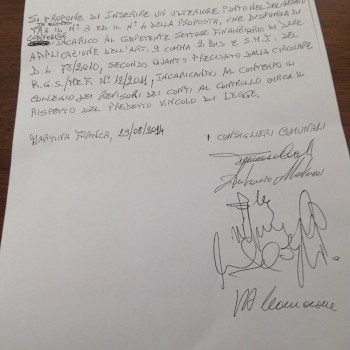 SI PROPONE DI INSERIRE UN ULTERIORE PUNTO NEL DELIBERATO
TRA IL N° 3 ED IL N° 4 DELLA PROPOSTA, CHE DISPONGA DI
CONFERIRE INCARICO AL COMPETENTE SETTORE FINANZIARIO DI DARE
APPLICAZIONE DELL'ART. 9 COMMA 2 BIS E S.M.I. DEL
D.L. 78/2010, SECONDO QUANTO PRECISATO DALLA CIRCOLARE
R.G.S./ N° 12/2011, INCARICANDO AL CONTEMPO IL
COLLEGIO DEI REVISORI DEI CONTI AL CONTROLLO CIRCA IL
RISPETTO DEL PREDETTO VINCOLO DI LEGGE.
MARTINA FRANCA, 29/05/2014
I CONSIGLIERI COMUNALI